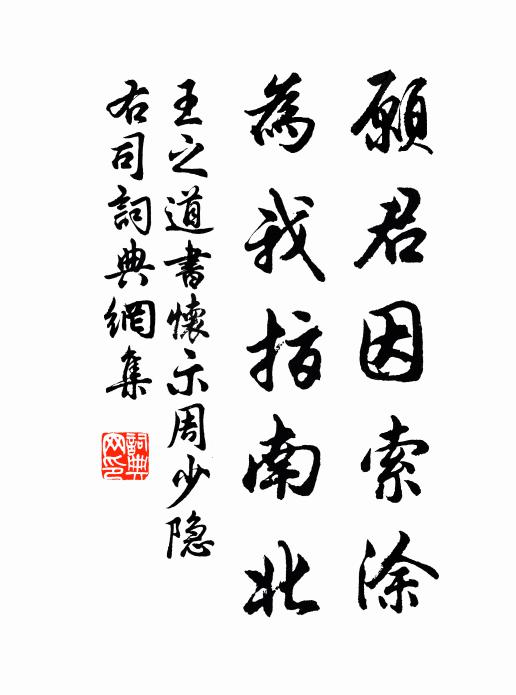 願君因索涂
為我指南北
王之道書懷示周少隐
右司詞典網集
詞典网印